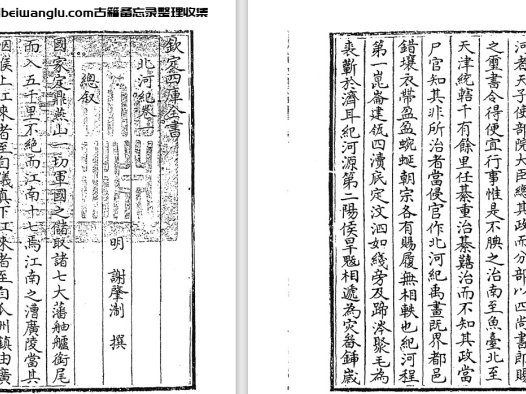 beiwanglu.com古籍备忘录整理收集
欽定四庫全書
北河紀卷一
明 謝肇淛 撰
總叙
國家定鼎燕山一切軍國之儲取諸七大藩舳艫銜尾
而入五千里不絶而江南十七焉江南之漕廣陵當其
咽喉上江来者至自儀真下江来者至自瓜州鎮由廣
河者天子使部院大臣總其政而分部以四尚書郎賜
之璽書令得便宜行事惟是不腆之治南至魚臺北至
天津統轄千有餘里任綦重治綦囏治而不知其政當
尸官知其非所治者當侵官作北河紀禹畫既界都邑
錯壤衣帶盈盈蜿蜒朝宗各有賜履無相軼也紀河程
第一崑崙建瓴四瀆底定汶泗如綫旁及蹄涔聚毛為
裘蘄於濟耳紀河源第二陽侯旱魃相遞為灾畚鍤歲